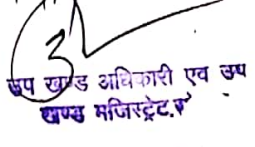 उप खण्ड अधिकारी एव उप
खण्ड मजिस्ट्रेट.